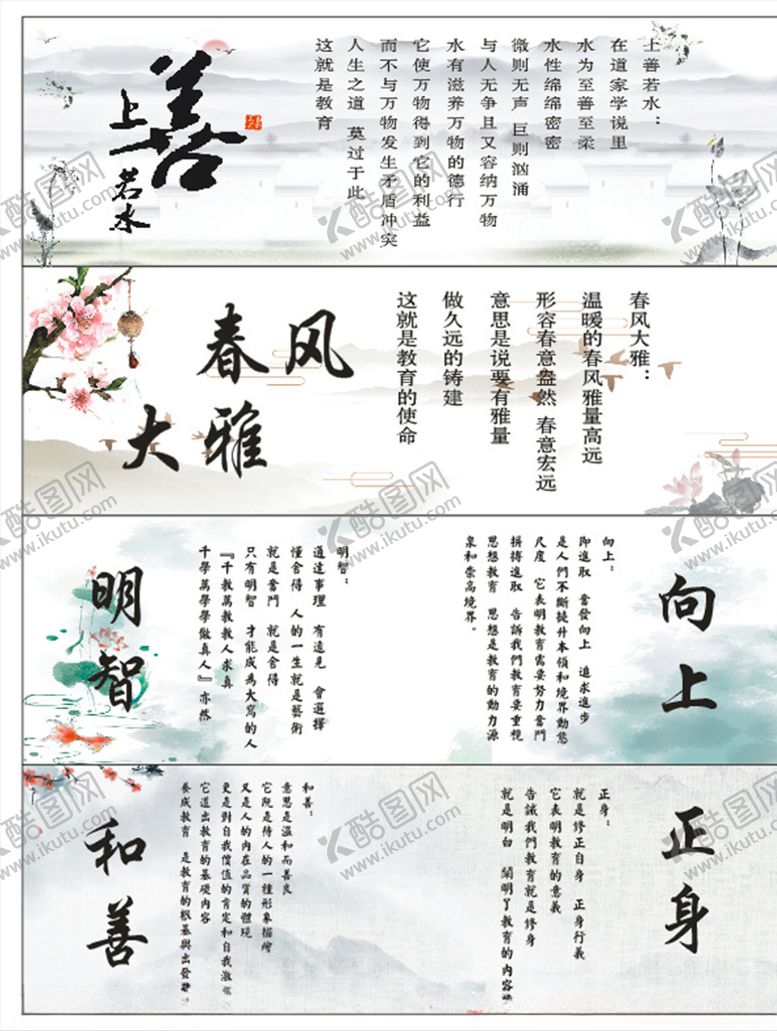 上善若水
上善若水：
在道家学说里
水为至善至柔
水性绵绵密密
微则无声 巨则汹涌
与人无争且又容纳万物
水有滋养万物的德行
它使万物得到它的利益
而不与万物发生矛盾冲突
人生之道 莫过于此
这就是教育
春风
大雅
春风大雅：
温暖的春风雅量高远
形容春意盎然 春意宏远
意思是说要有雅量
做久远的铸建
这就是教育的使命
明智
明智：
通達事理 有遠見 會選擇
懂舍得 人的一生就是藝術
就是奮鬥 就是舍得
只有明智 才能成為大寫的人
『千教萬教教人求真
千學萬學學做真人』亦然
向上
向上：
即進取 奮發向上 追求進步
是人們不斷提升本領和境界動態
尺度 它表明教育需要努力奮鬥
拼搏進取 告訴我們教育要重視
思想教育 思想是教育的動力源
泉和崇高境界。
和善
和善：
意思是溫和而善良
它既是待人的一種形象描繪
又是人的內在品質的體現
更是對自我價值的肯定和自我激
它道出教育的基礎內容
養成教育 是教育的根基與出發
正身
正身：
就是修正自身 正身行義
它表明教育的意義
告誡我們教育就是修身
就是明白 闡明了教育的內容
K酷图网
www.ikutu.com